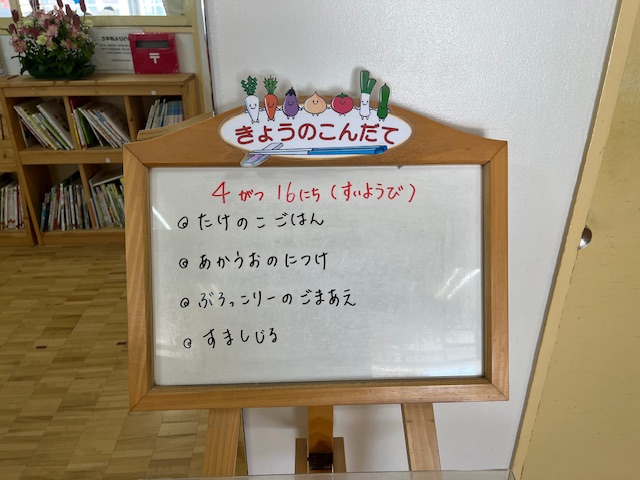 きょうのこんだて
4がつ 16にち(すいようび)
◎ たけのこごはん
◎ あかうおのにつけ
◎ ぶろっこりーのごまあえ
◎ すましじる
〒